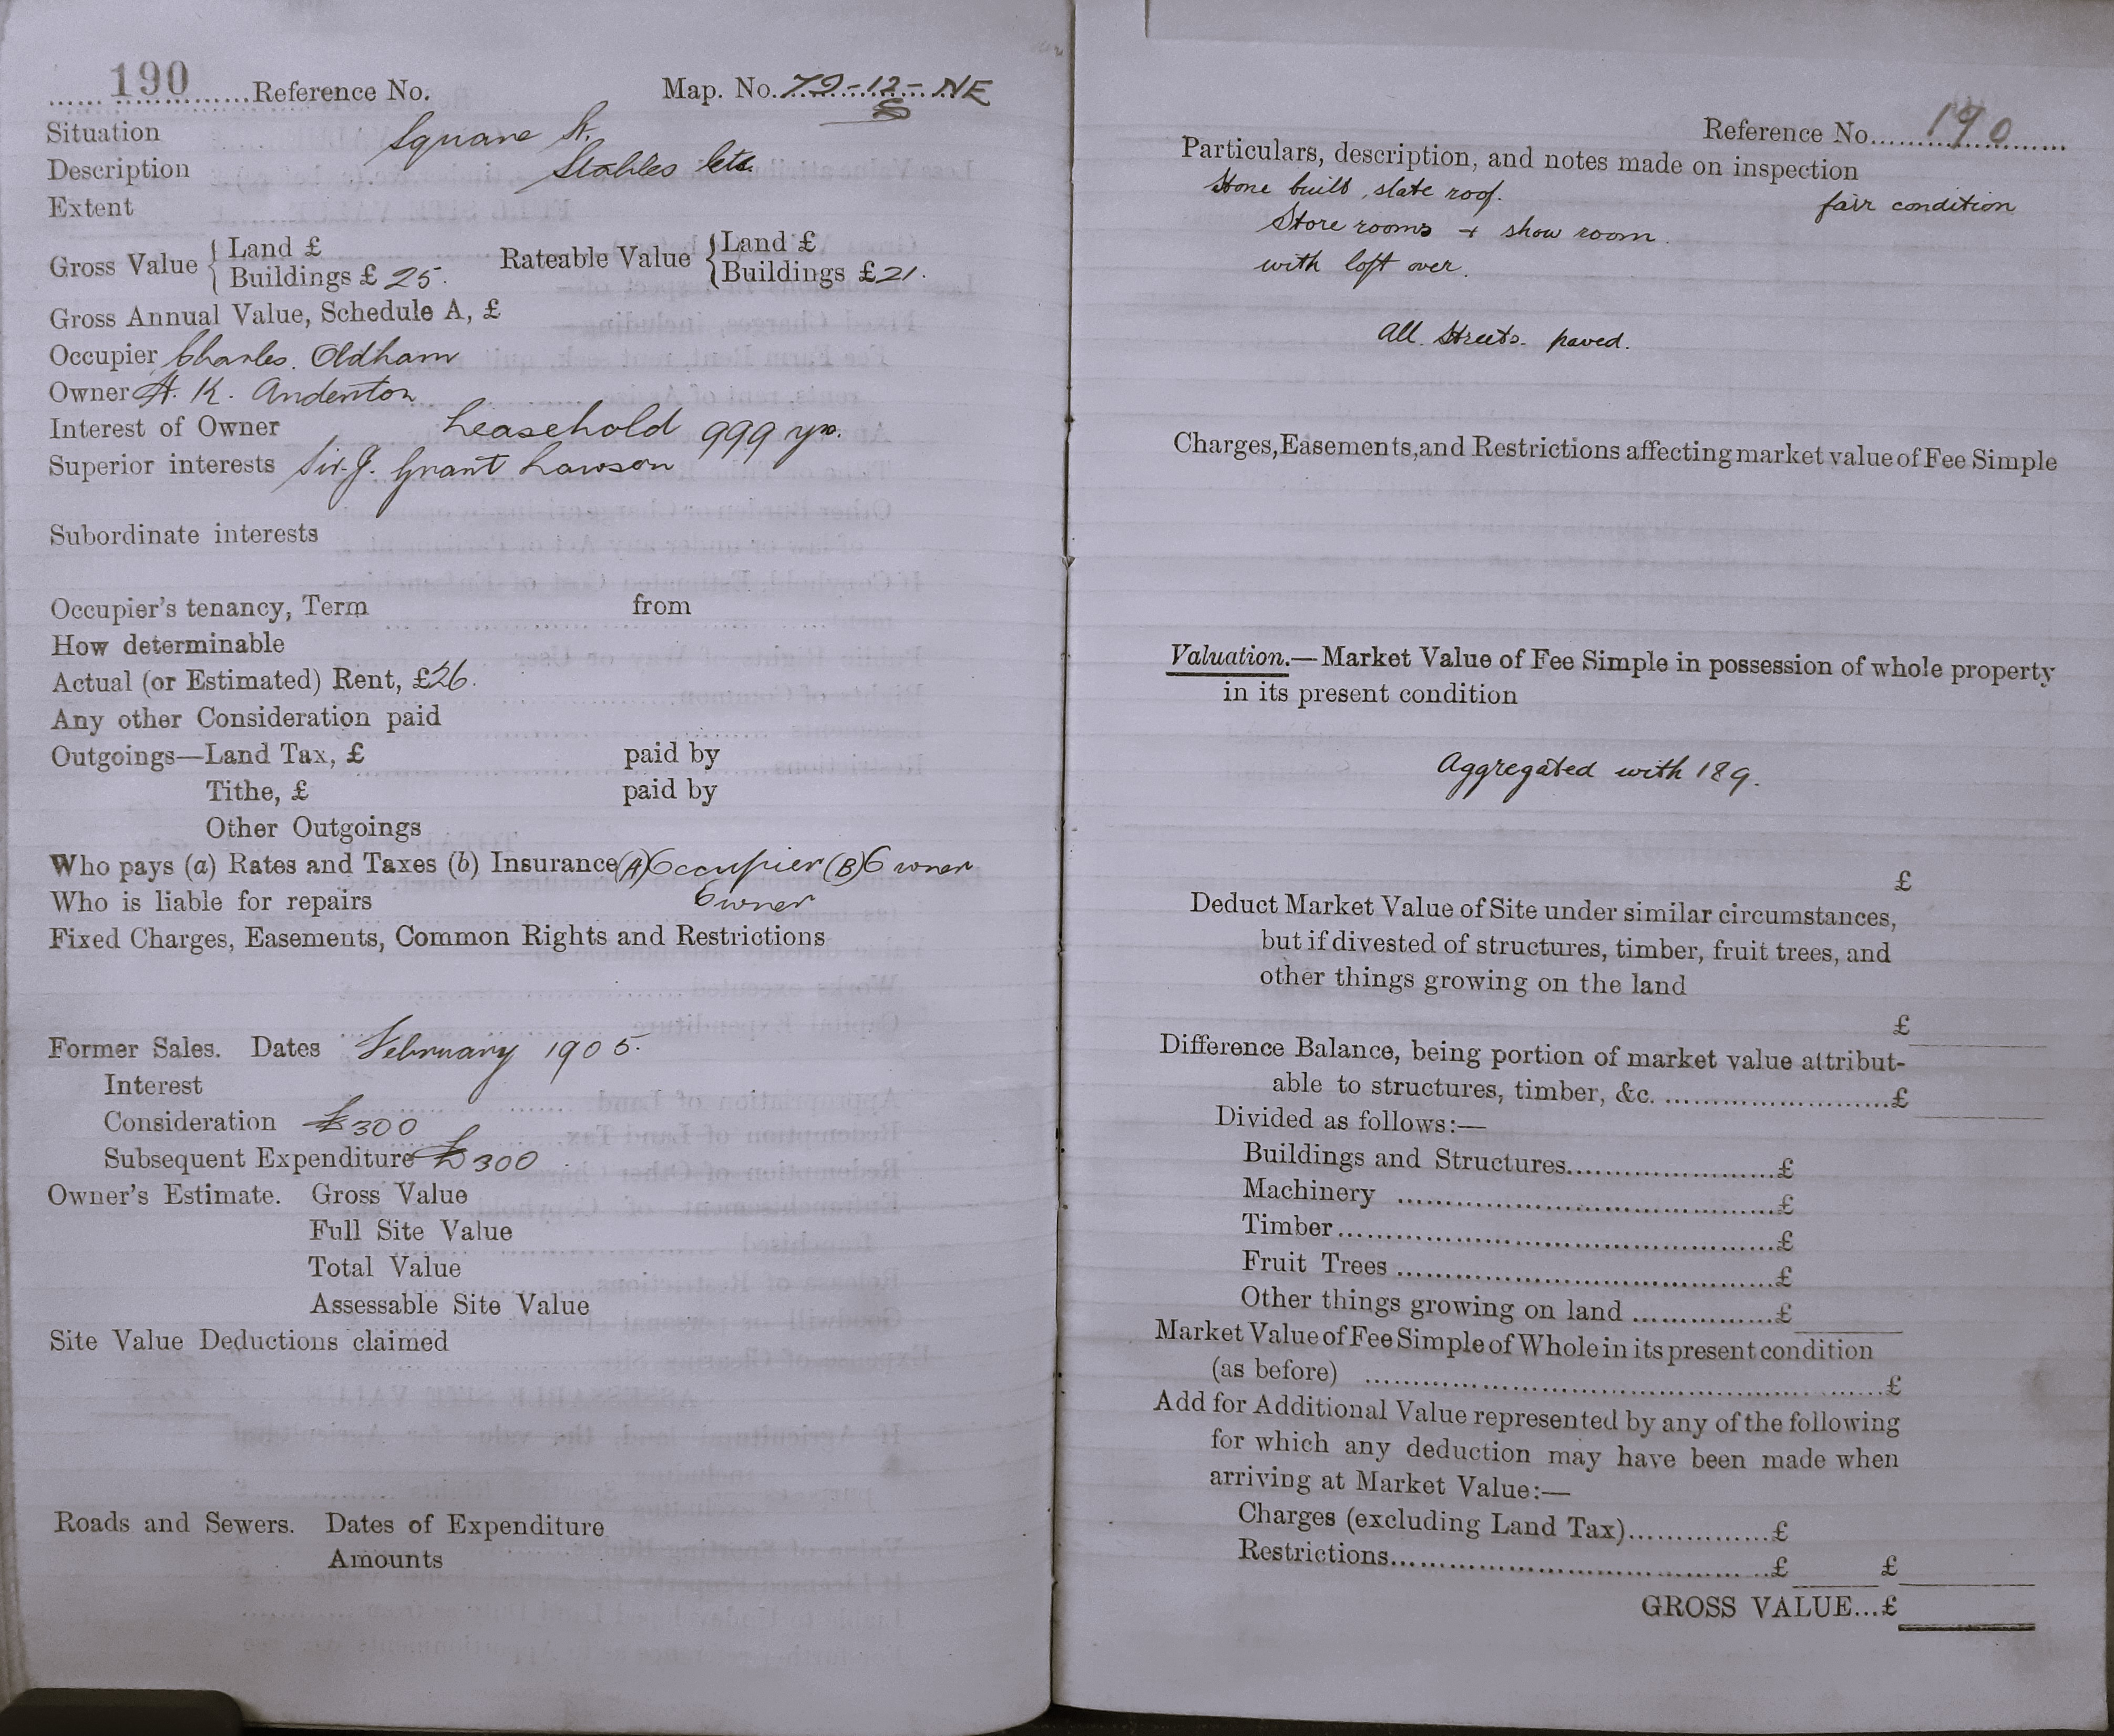 190 Reference No. Map. No. 79-12-NE
S
Situation Square St.
Description Stables Etc.
Extent
Gross Value { Land £ Rateable Value { Land £
Buildings £ 25. Buildings £ 21.
Gross Annual Value, Schedule A, £
Occupier Charles. Oldham
Owner A. K. Anderton
Interest of Owner Leasehold 999 yrs.
Superior interests Sir. J. Grant Lawson
Subordinate interests
Occupier's tenancy, Term from
How determinable
Actual (or Estimated) Rent, £26.
Any other Consideration paid
Outgoings—Land Tax, £ paid by
Tithe, £ paid by
Other Outgoings
Who pays (a) Rates and Taxes (b) Insurance (A) Occupier (B) Owner
Who is liable for repairs Owner
Fixed Charges, Easements, Common Rights and Restrictions
Former Sales. Dates February 1905.
Interest
Consideration £300
Subsequent Expenditure £300
Owner's Estimate. Gross Value
Full Site Value
Total Value
Assessable Site Value
Site Value Deductions claimed
Roads and Sewers. Dates of Expenditure
Amounts
Reference No. 190
Particulars, description, and notes made on inspection
Stone built, slate roof. fair condition
Store rooms + show room.
with loft over.
All. Streets. paved.
Charges, Easements, and Restrictions affecting market value of Fee Simple
Valuation.—Market Value of Fee Simple in possession of whole property
in its present condition
Aggregated with 189.
£
Deduct Market Value of Site under similar circumstances,
but if divested of structures, timber, fruit trees, and
other things growing on the land
£
Difference Balance, being portion of market value attribut-
able to structures, timber, &c. £
Divided as follows:—
Buildings and Structures £
Machinery £
Timber £
Fruit Trees £
Other things growing on land £
Market Value of Fee Simple of Whole in its present condition
(as before) £
Add for Additional Value represented by any of the following
for which any deduction may have been made when
arriving at Market Value:—
Charges (excluding Land Tax) £
Restrictions £ £
GROSS VALUE...£